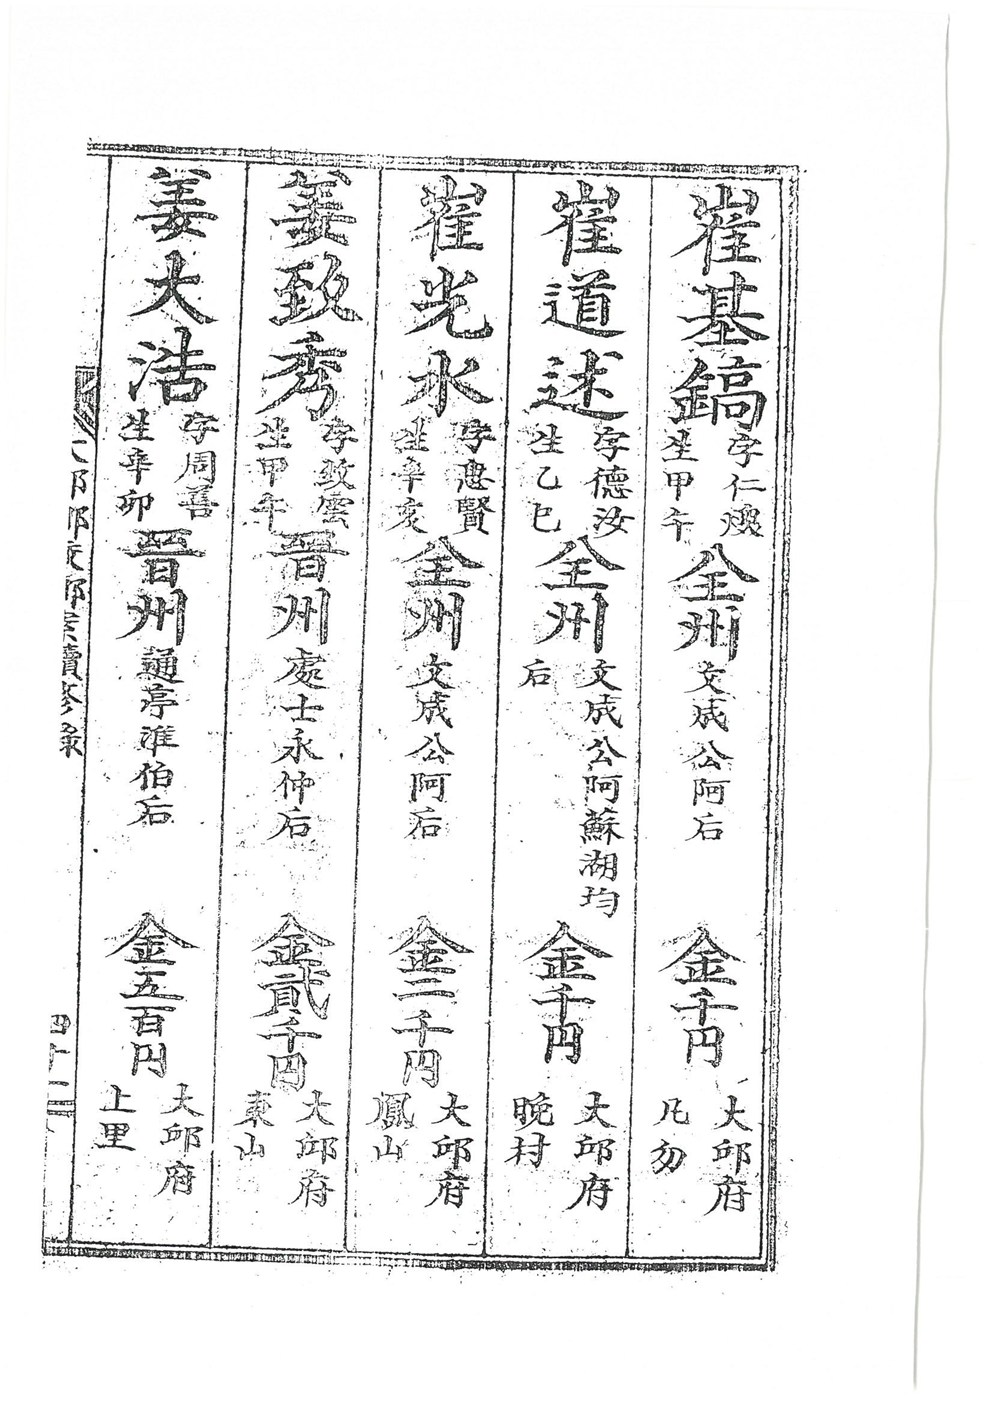 崔基鎬 字仁煥 生甲午 全州 文成公阿后 金千円 大邱府 凡勿
崔道述 字德汝 生乙巳 全州 文成公阿蘇湖均后 金千円 大邱府 晩村
崔光水 字惠賢 生辛亥 全州 文成公阿后 金二千円 大邱府 鳳山
姜致秀 字致雲 生甲午 晉州 處士永仲后 金貳千円 大邱府 東山
姜大浩 字周善 生辛卯 晉州 通亭淮伯后 金五百円 大邱府 上里
鄕校鄕案續修錄
四十二